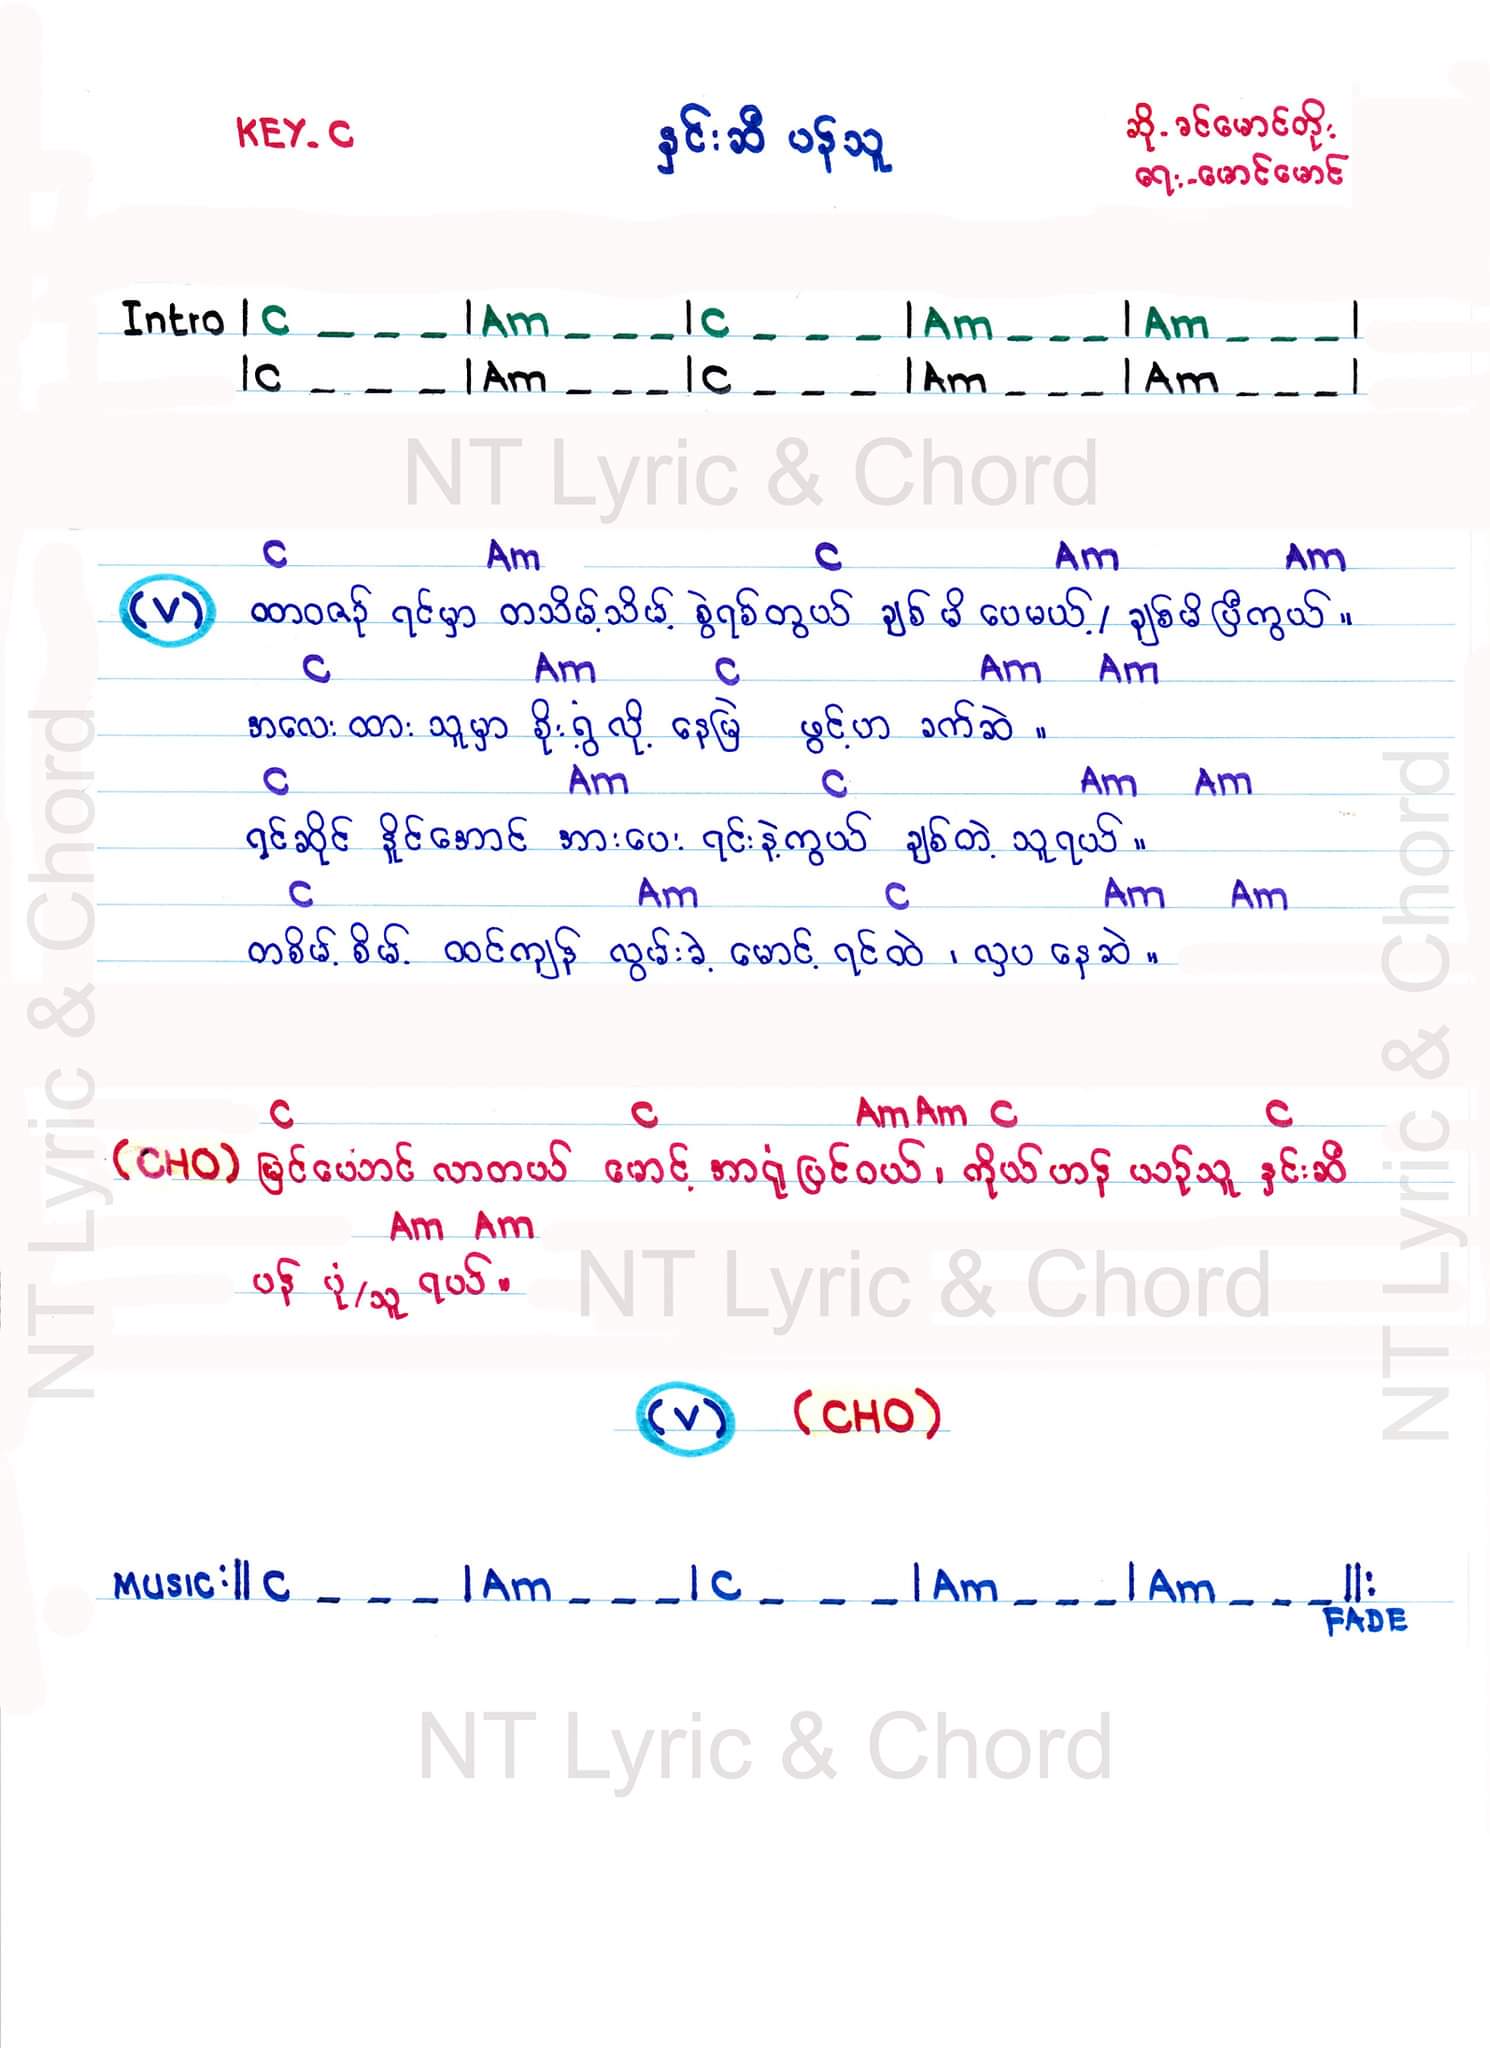 KEY. C
နှင်းဆီ ပန်သူ
ဆို - ခင်မောင်တိုး
ရေး - မောင်မောင်
Intro | C _ _ _ | Am _ _ _ | C _ _ _ | Am _ _ _ | Am _ _ _ |
| C _ _ _ | Am _ _ _ | C _ _ _ | Am _ _ _ | Am _ _ _ |
NT Lyric & Chord
C Am C Am Am
(V) ထာဝဇဉ် ရင်မှာ တသိမ့်သိမ့် စွဲရစ်တွယ် ချစ်မိပေမယ့် / ချစ်မိပြီကွယ် ။
C Am C Am Am
အလေးထားသူမှာ စိုးရွံ့လို့ နေမြဲ ဖွင့်ဟ ခက်ဆဲ ။
C Am C Am Am
ရင်ဆိုင် နိူင်အောင် အားပေး ရင်းနဲ့ကွယ် ချစ်တဲ့ သူရယ် ။
C Am C Am Am
တစိမ့်စိမ့် ထင်ကျန် လွမ်းခဲ့ မောင့် ရင်ထဲ ၊ လှပ နေဆဲ ။
C C Am Am C C
(CHO) မြင်ယောင် လာတယ် မောင့် အာရုံမြင်ဝယ် ၊ ကိုယ်ဟန် ယဉ်သူ နှင်းဆီ
Am Am
ပန် ပုံ / သူ ရယ် ။
NT Lyric & Chord
(V) (CHO)
MUSIC :|| C _ _ _ | Am _ _ _ | C _ _ _ | Am _ _ _ | Am _ _ _ ||:
FADE
NT Lyric & Chord
NT Lyric & Chord
NT Lyric & Chord